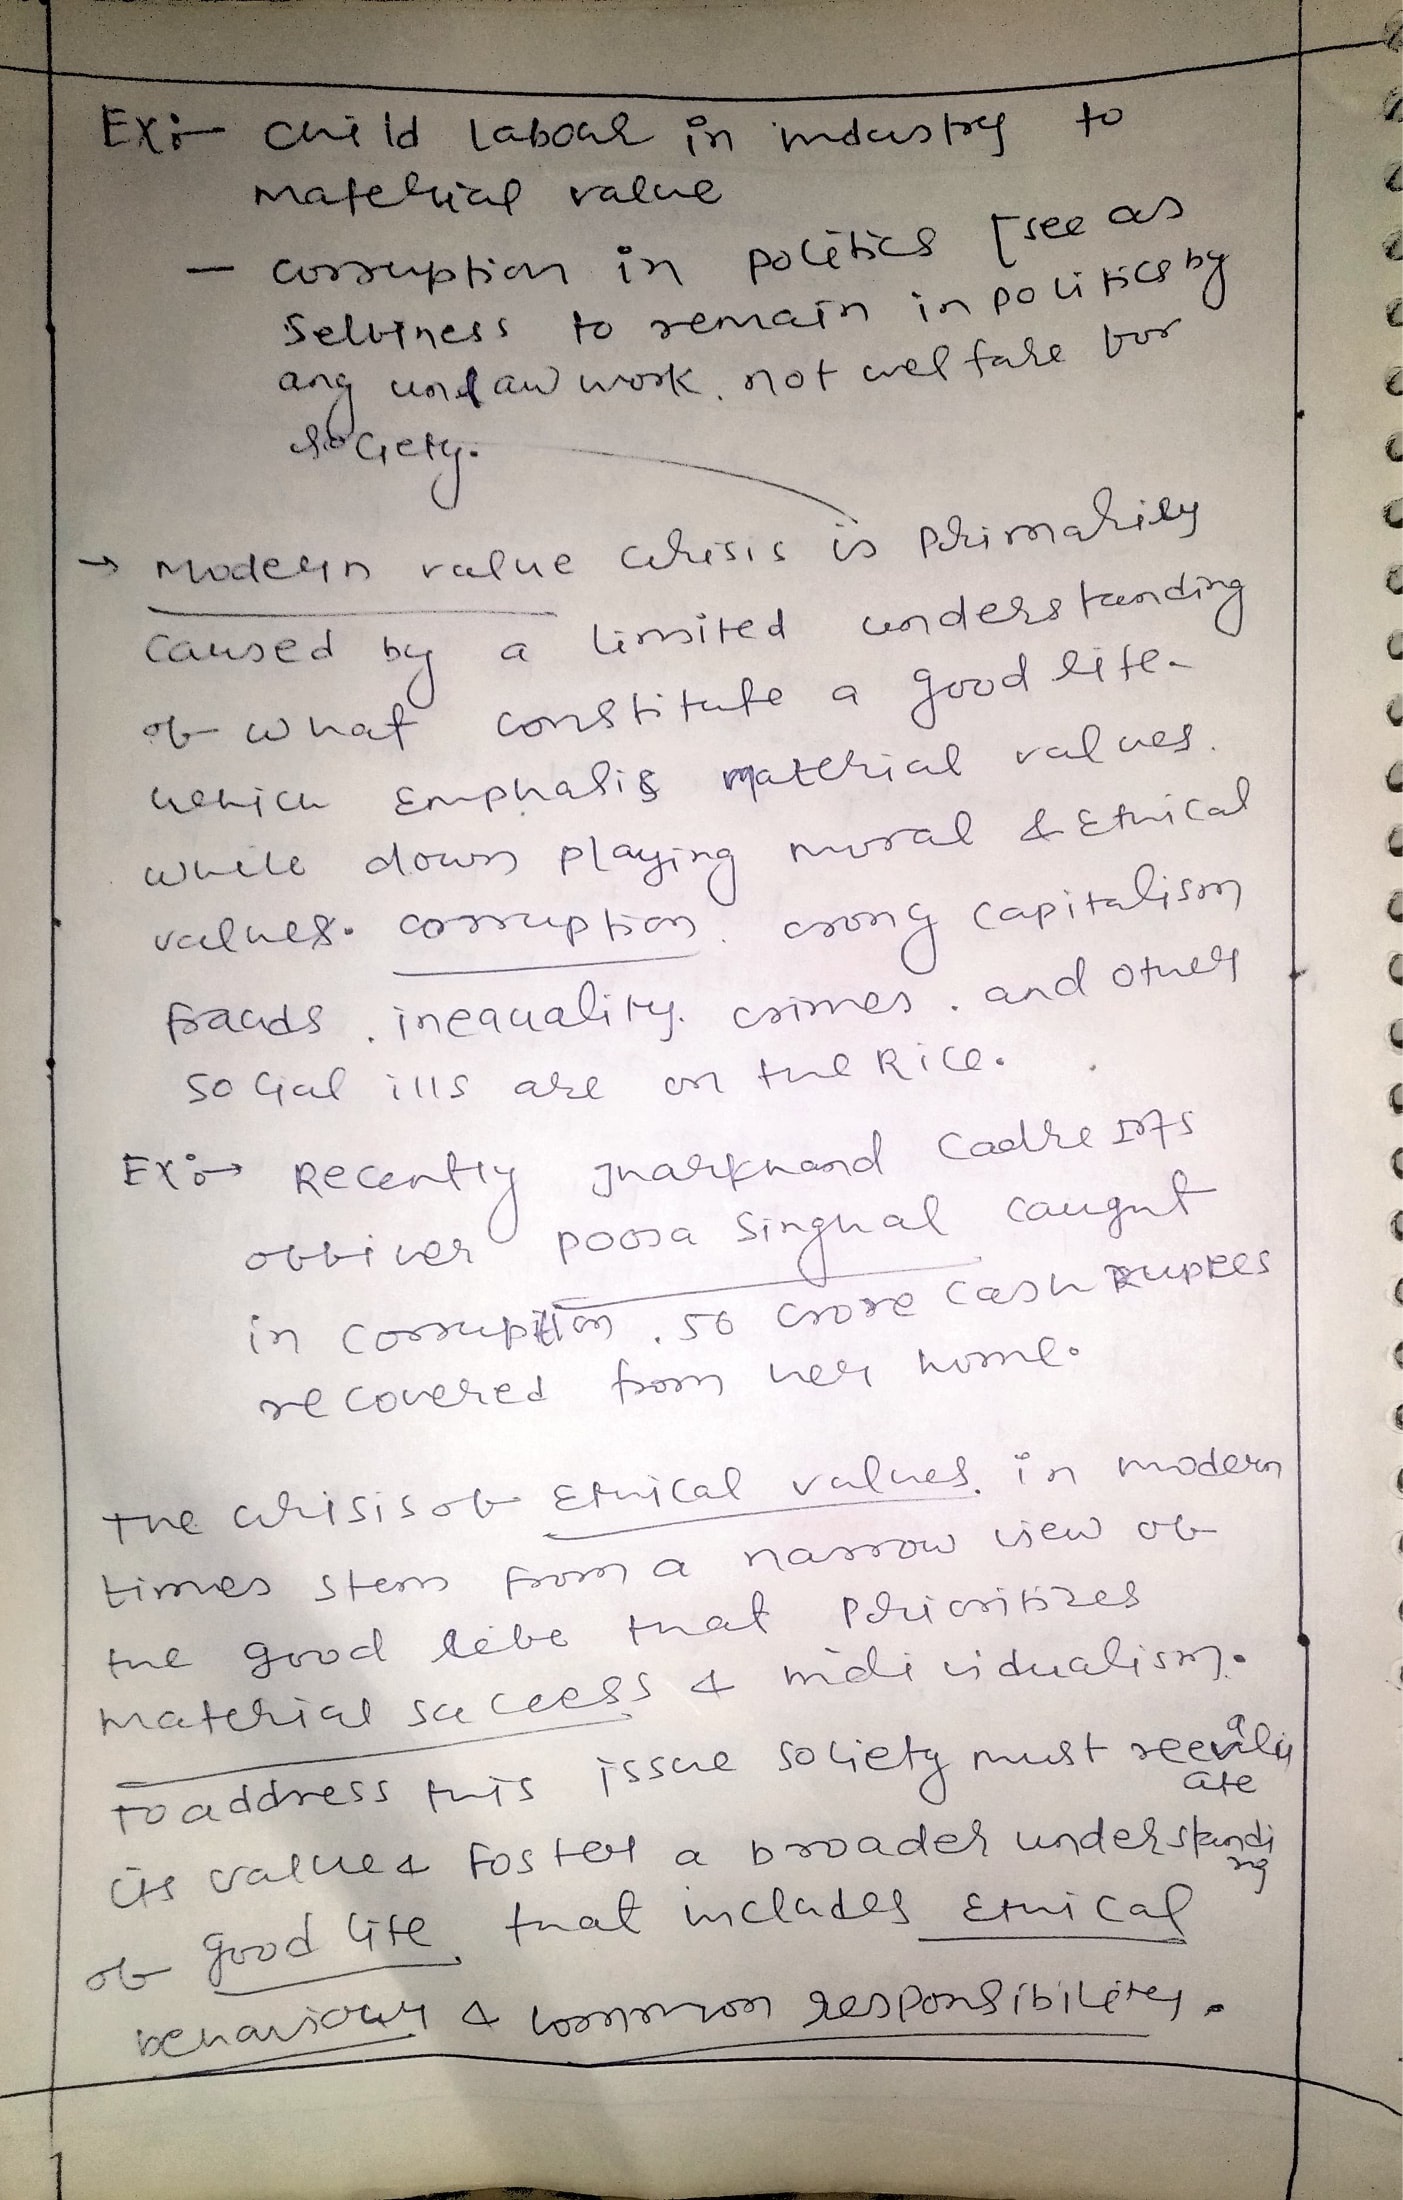 Ex:- child labour in industry to
material value
- corruption in politics [see as
selfiness to remain in politics by
any unlaw work, not welfare for
society.
→ Modern value crisis is primarily
caused by a limited understanding
of what constitute a good life.
which emphasis material values.
while down playing moral & Ethical
values. corruption, crony capitalism
frauds, inequality. crimes, and other
social ills are on the Rice.
Ex:→ Recently Jharkhand Cadre IAS
officer pooja Singhal caught
in corruption, 50 crore cash Rupees
recovered from her home.
The crisis of Ethical values, in modern
times stem from a narrow view of
the good life that prioritizes
material success & individualism.
To address this issue society must reevalu
ate
its value & foster a broader understandi
ng
of good life, that includes Ethical
behaviour & common responsibility.